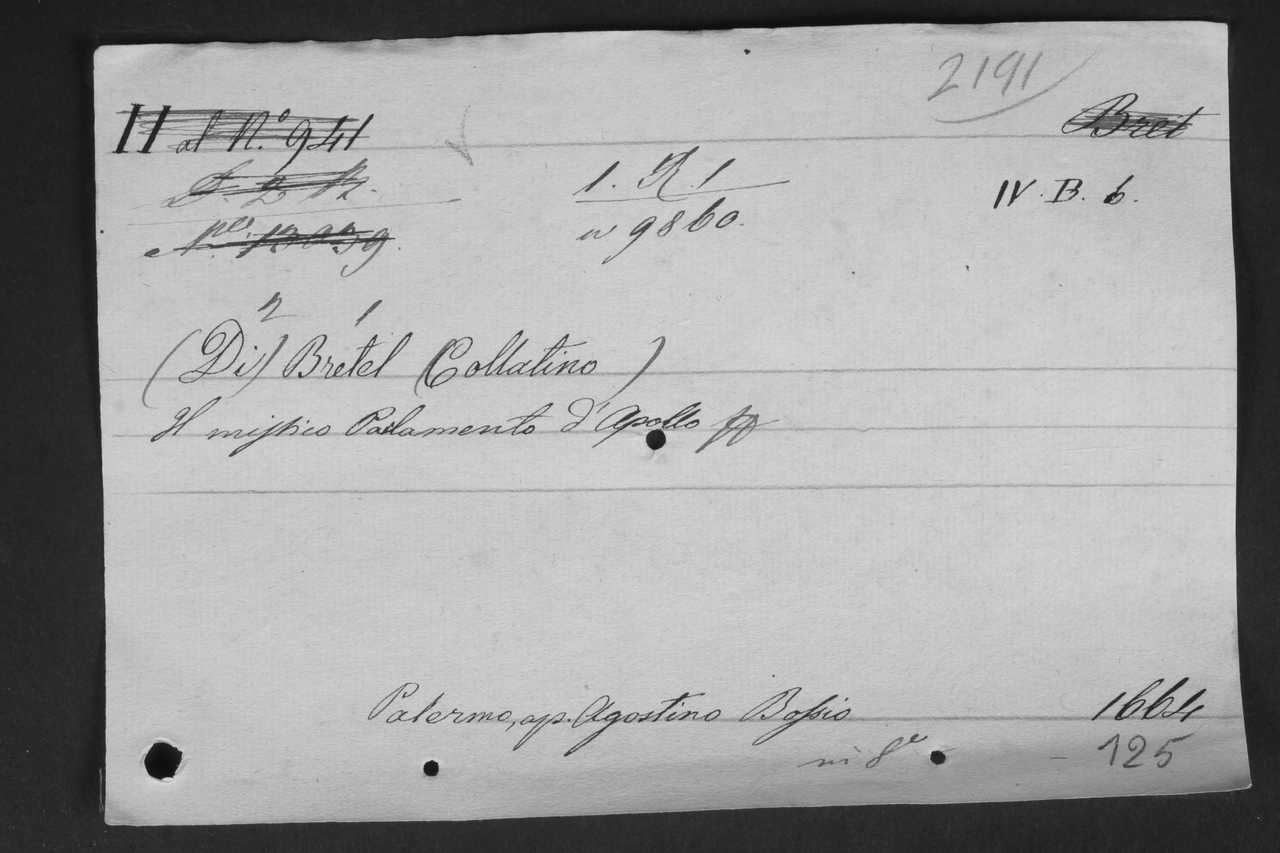 2191
II al N.º 941
Bret
1. R. 1
IV. B. 6.
N.º 13039
w 9860.
2 1
(Di) Bretel (Collatino)
Il mistico Parlamento d'Apollo
Palermo, ap. Agostino Bossio 1664
in 8º - 125